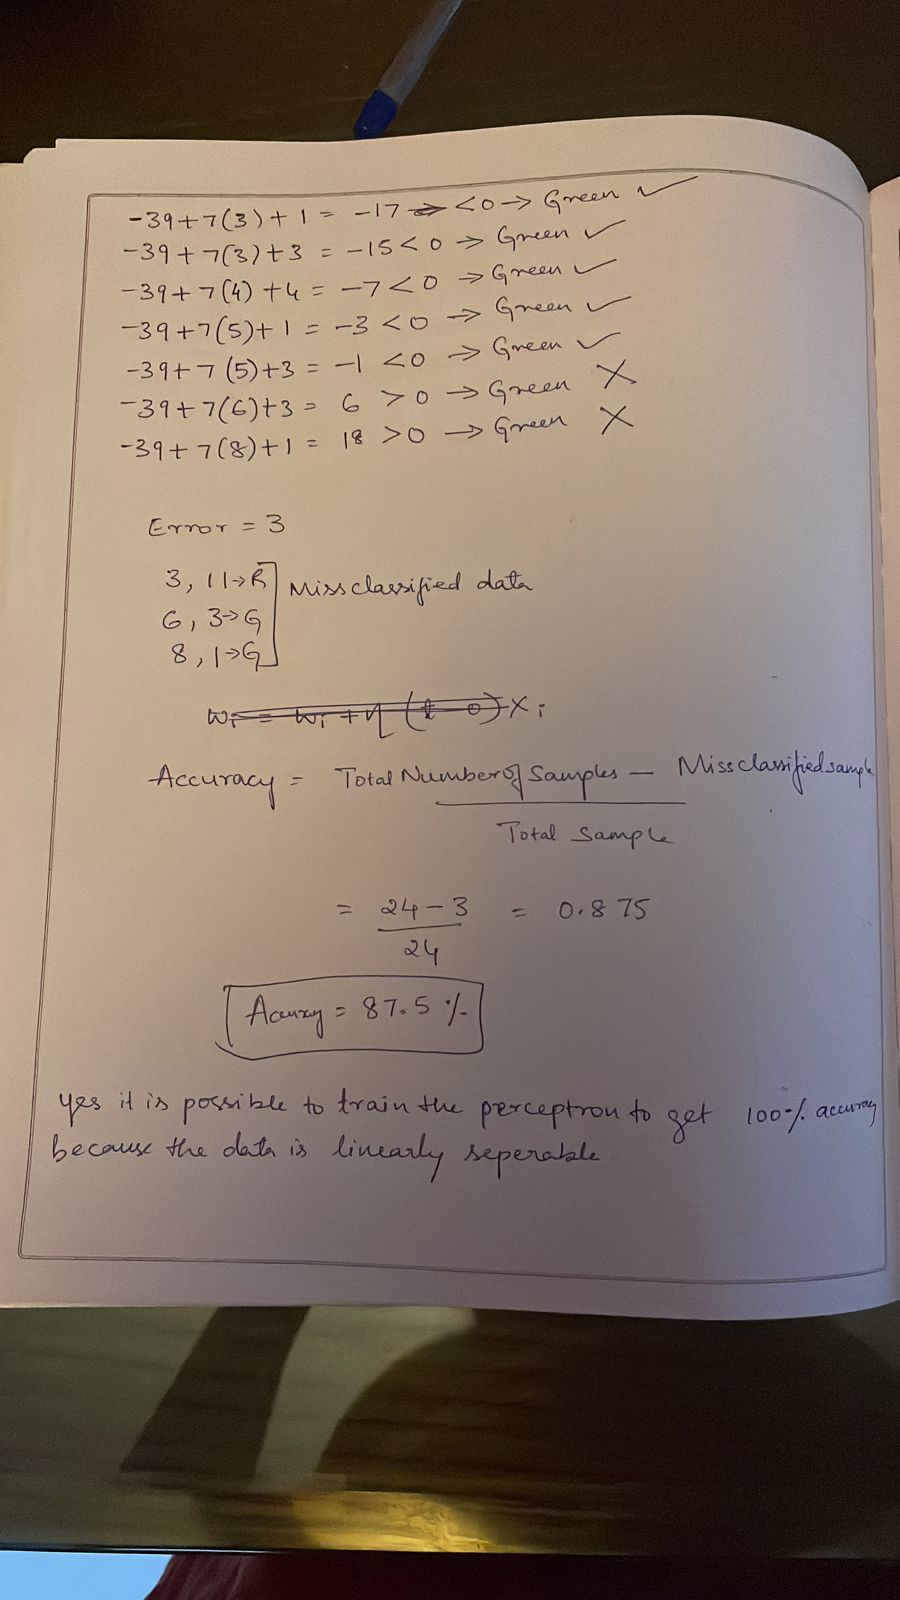 -39+7(3)+1 = -17 <0 → Green ✓
-39+7(3)+3 = -15<0 → Green ✓
-39+7(4)+4 = -7<0 → Green ✓
-39+7(5)+1 = -3<0 → Green ✓
-39+7(5)+3 = -1 <0 → Green ✓
-39+7(6)+3 = 6 >0 → Green X
-39+7(8)+1 = 18 >0 → Green X
Error = 3
3, 11→R
Missclassified data
6, 3→G
8, 1→G
wi = wi + η (t - o) xi
Accuracy = Total Number of Samples - Missclassified sample
Total Sample
= 24-3 = 0.875
24
Accuracy = 87.5 %
yes it is possible to train the perceptron to get 100% accuracy
because the data is linearly seperable